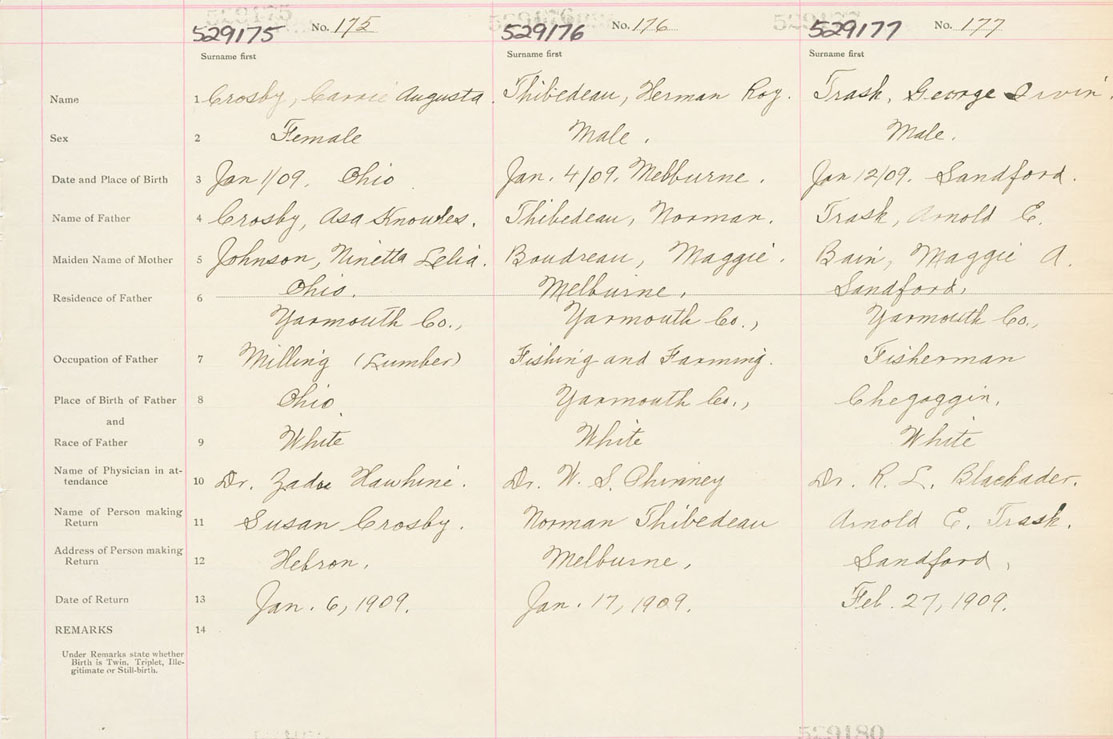 529175 No. 175 529176 No. 176 529177 No. 177
Surname first Surname first Surname first
Name 1 Crosby, Carrie Augusta. Thibedeau, Herman Roy. Trask, George Irvin.
Sex 2 Female Male. Male.
Date and Place of Birth 3 Jan 1/09. Ohio Jan. 4/09. Melburne. Jan 12/09. Sandford.
Name of Father 4 Crosby, Asa Knowles. Thibedeau, Norman. Trask, Arnold E.
Maiden Name of Mother 5 Johnson, Ninetta Lelia. Boudreau, Maggie. Bain, Maggie A.
Ohio. Melburne, Sandford,
Residence of Father 6
Yarmouth Co., Yarmouth Co., Yarmouth Co.,
Occupation of Father 7 Milling (Lumber) Fishing and Farming. Fisherman
Place of Birth of Father 8 Ohio Yarmouth Co., Chegoggin.
and
Race of Father 9 White White White
Name of Physician in at-
tendance 10 Dr. Zadoc Hawkins. Dr. W. S. Phinney Dr. R. L. Blackader.
Name of Person making
Return 11 Susan Crosby. Norman Thibedeau Arnold E. Trask.
Address of Person making
Return 12 Hebron. Melburne, Sandford,
Date of Return 13 Jan. 6, 1909. Jan. 17, 1909. Feb. 27, 1909.
REMARKS 14
Under Remarks state whether
Birth is Twin, Triplet, Ille-
gitimate or Still-birth.
529180